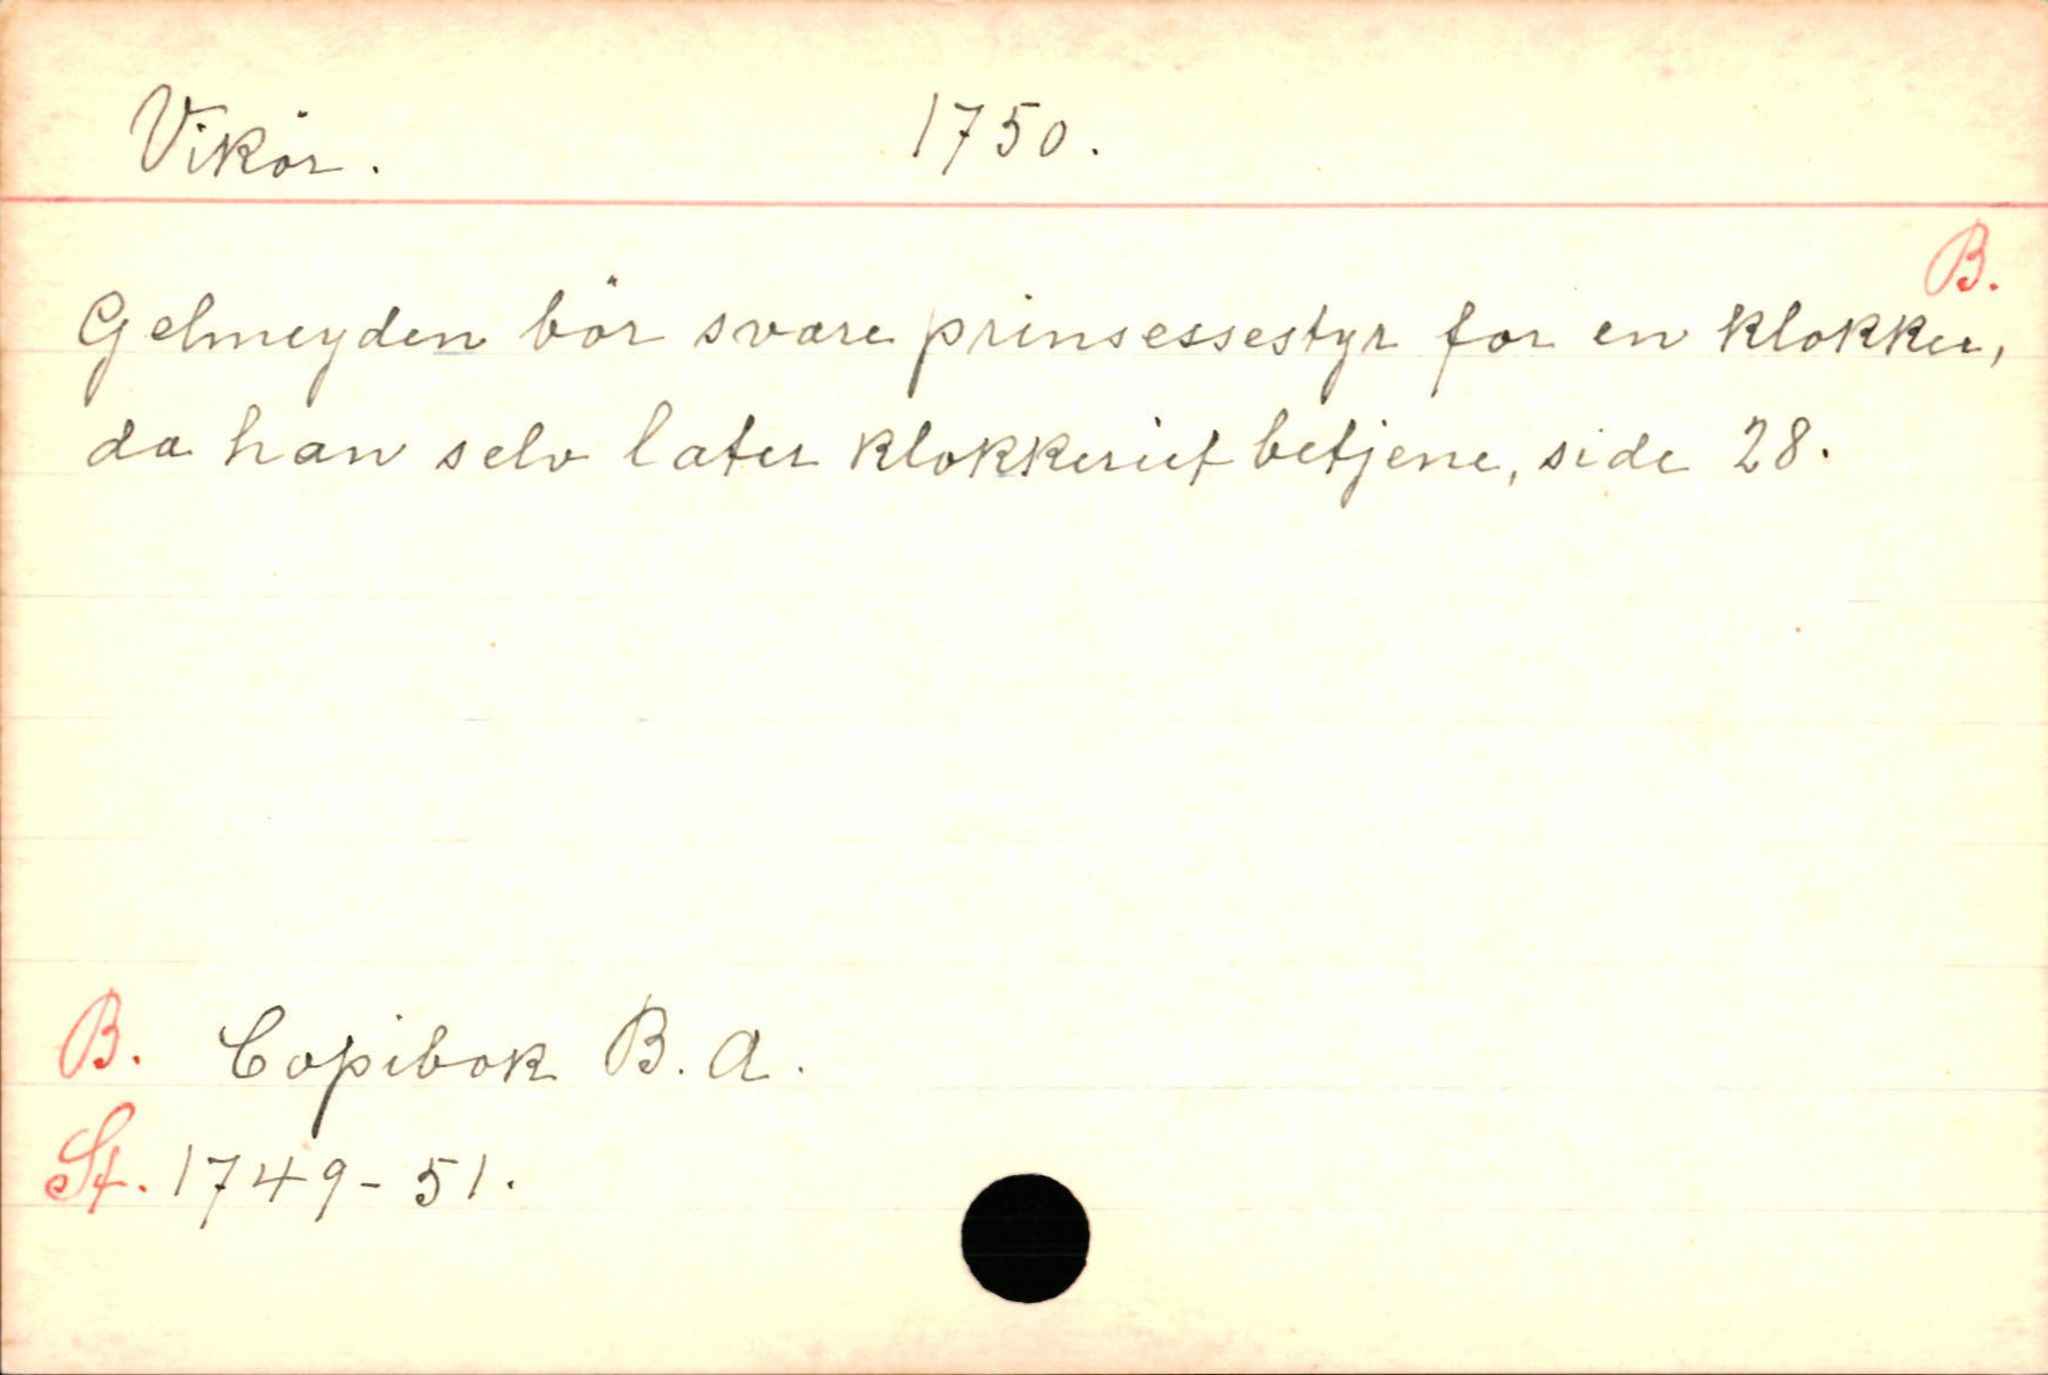 Vikör. 1750.
B.
Gelmeyden bör svare prinsessestyr for en klokker,
da han selv later klokkeriet betjene, side 28.
B. Copibok B. A.
St. 1749-51.